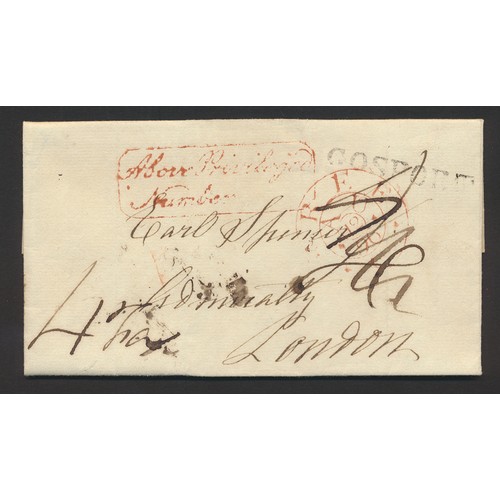 Above Privileged
Number
GOSPORT
Earl Spencer
Admiralty
4
London